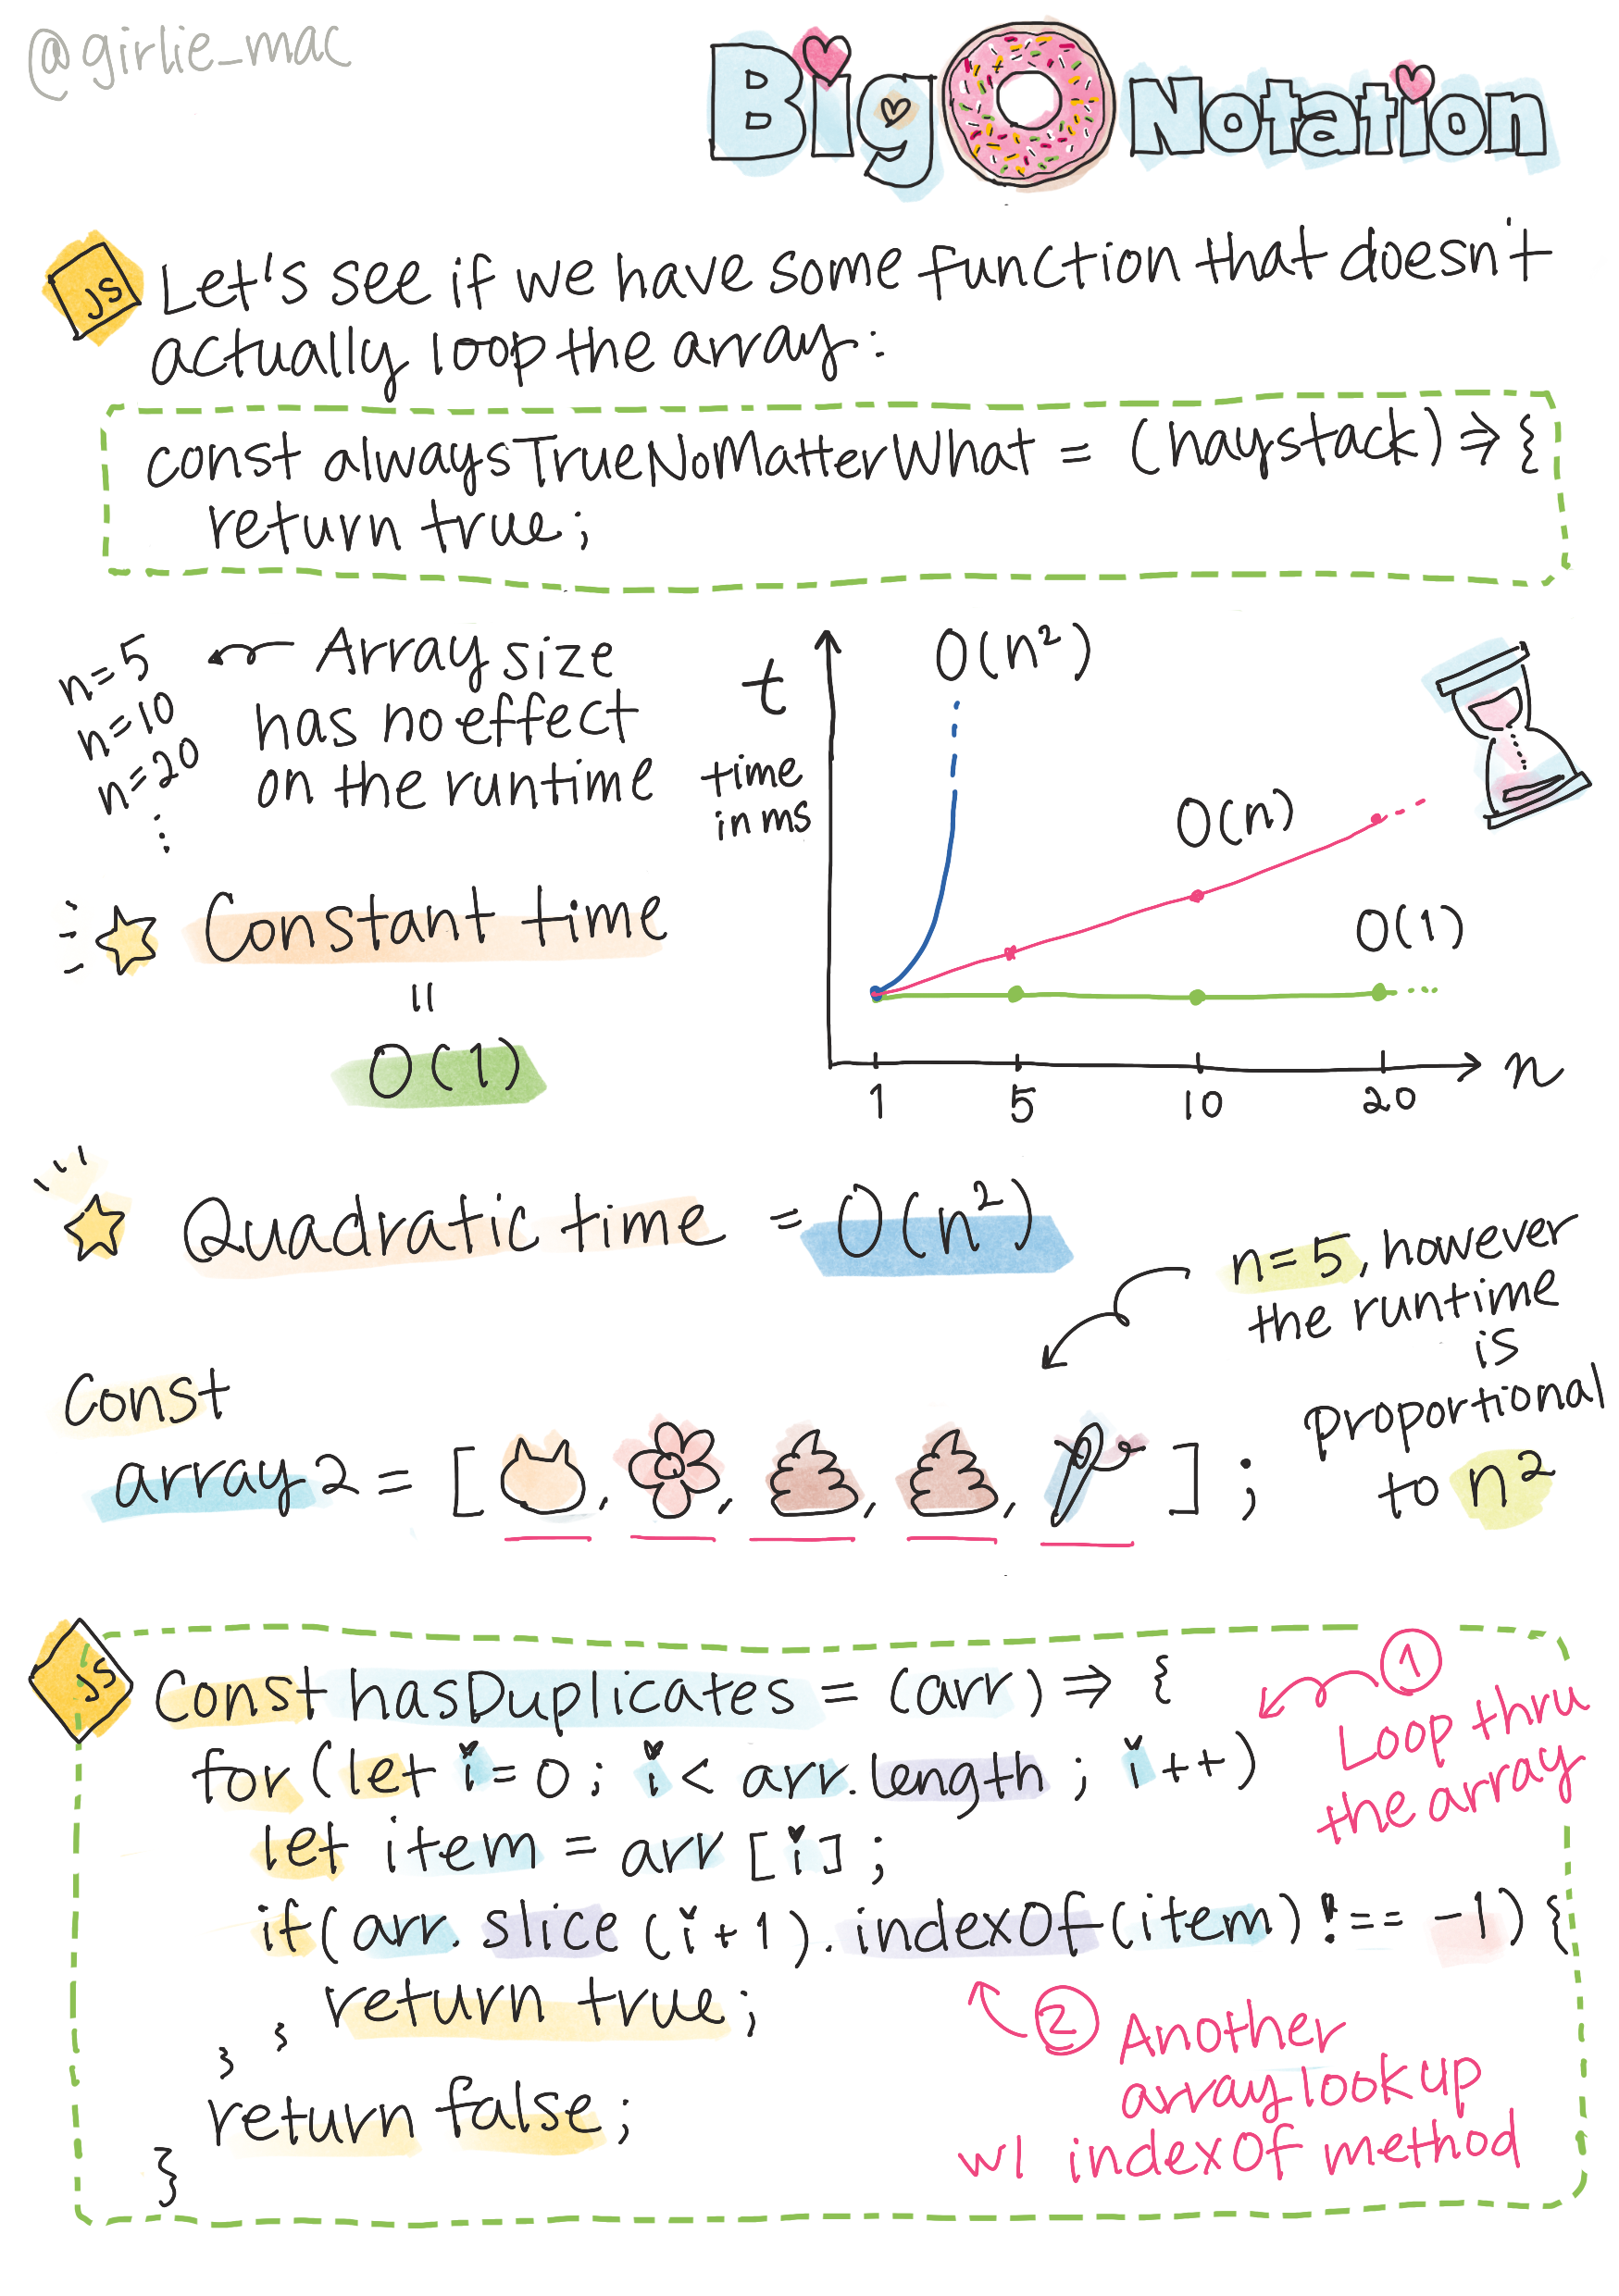 @girlie_mac
Big O Notation
JS
Let's see if we have some function that doesn't
actually loop the array:
const alwaysTrueNoMatterWhat = (haystack) => {
return true;
n=5
n=10
n=20
⋮
Array size
has no effect
on the runtime
Constant time
=
O(1)
t
time
in ms
O(n²)
O(n)
O(1)
1 5 10 20
n
Quadratic time = O(n²)
n=5, however
the runtime
is
proportional
to n²
Const
array2 = [ , , , , ] ;
JS
Const hasDuplicates = (arr) => {
for (let i = 0; i < arr.length; i++)
let item = arr[i];
if (arr.slice(i+1).indexOf(item) !== -1) {
return true;
} }
return false;
}
① Loop thru
the array
② Another
array lookup
w/ indexOf method